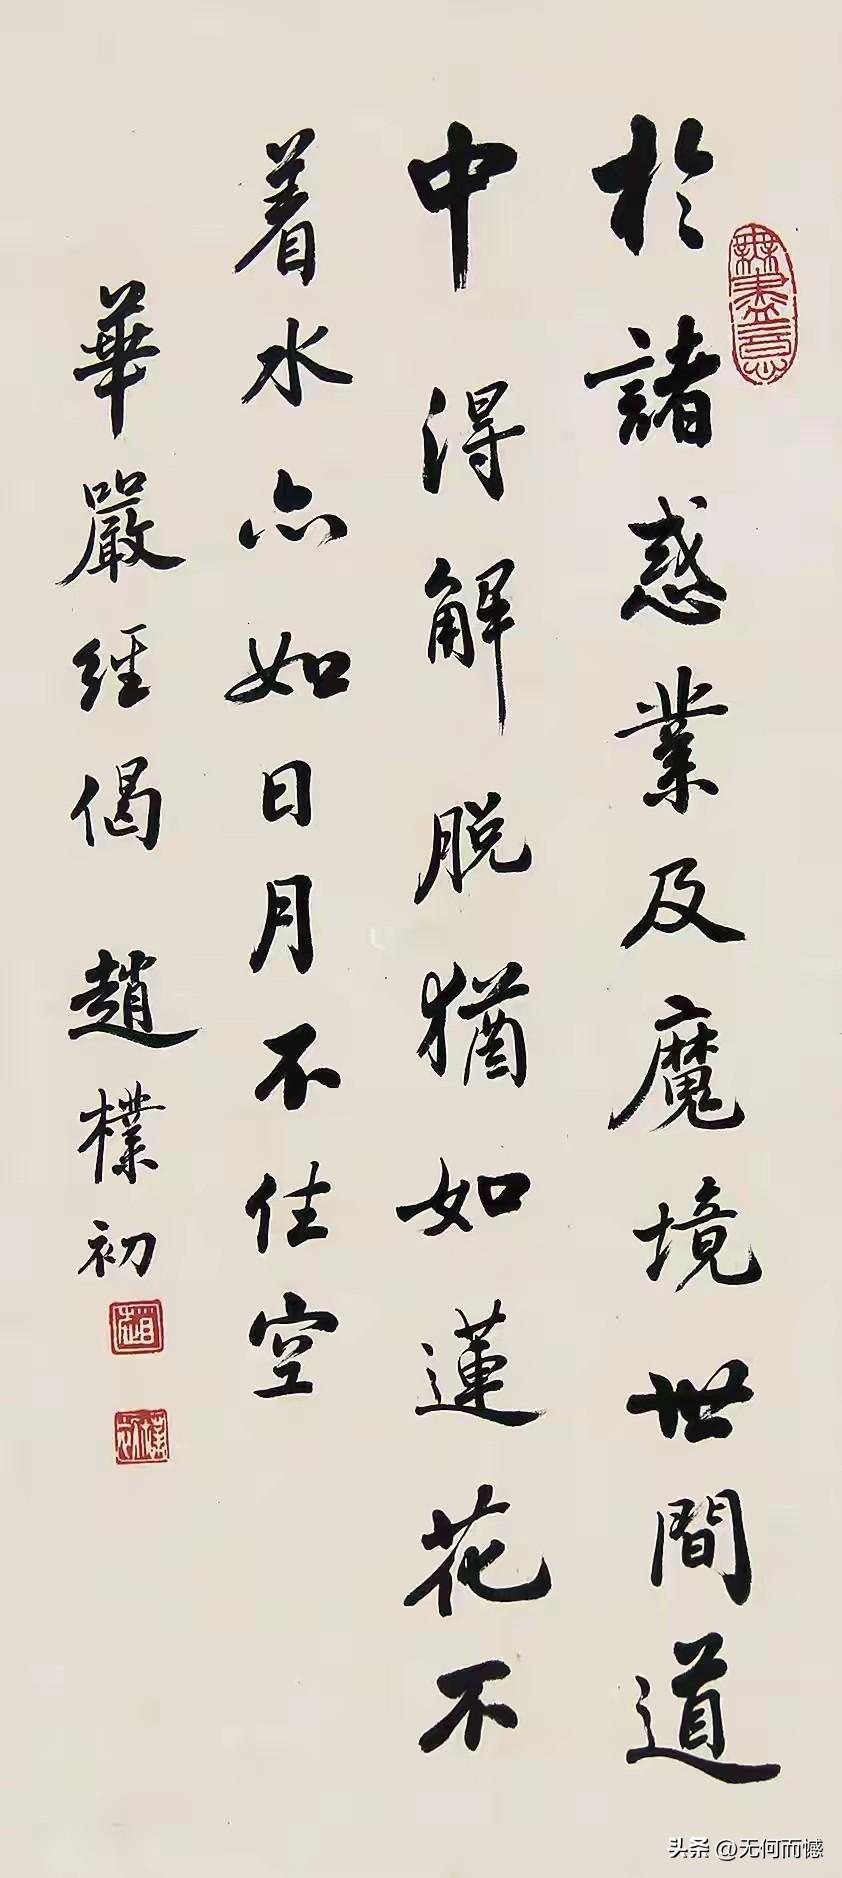 於諸惑業及魔境世間道
中得解脱猶如蓮花不
着水亦如日月不住空
華嚴經偈 趙樸初
無盡意
趙
樸初
头条 @无何而憾